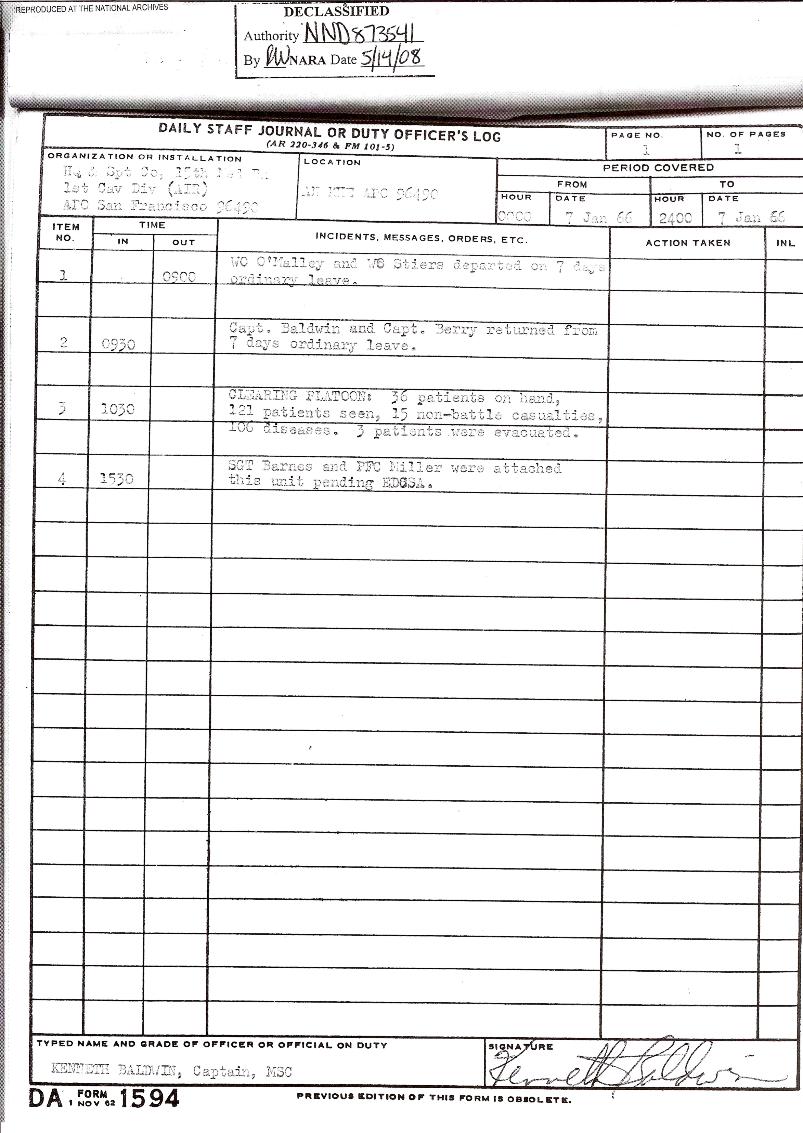 REPRODUCED AT THE NATIONAL ARCHIVES
DECLASSIFIED
Authority NND873541
By NARA Date 5/14/08
DAILY STAFF JOURNAL OR DUTY OFFICER'S LOG
(AR 220-346 & FM 101-5)
PAGE NO.
1
NO. OF PAGES
1
ORGANIZATION OR INSTALLATION
Spt Co, 15th
1st Cav Div (AIR)
APO San Francisco 96490
LOCATION
AN KHE APO 96490
PERIOD COVERED
FROM
TO
HOUR
DATE
HOUR
DATE
0000
7 Jan 66
2400
7 Jan 66
ITEM NO.
TIME
IN
OUT
INCIDENTS, MESSAGES, ORDERS, ETC.
ACTION TAKEN
INL
1
0900
WO O'Malley and WO Stiers departed on 7 days
ordinary leave.
2
0930
Capt. Baldwin and Capt. Berry returned from
7 days ordinary leave.
3
1030
CLEARING PLATOON: 36 patients on hand,
121 patients seen, 15 non-battle casualties,
106 diseases. 3 patients were evacuated.
4
1530
SGT Barnes and PFC Miller were attached
this unit pending EDCSA.
TYPED NAME AND GRADE OF OFFICER OR OFFICIAL ON DUTY
KENNETH BALDWIN, Captain, MSC
SIGNATURE
Kenneth Baldwin
DA FORM 1 NOV 62 1594
PREVIOUS EDITION OF THIS FORM IS OBSOLETE.